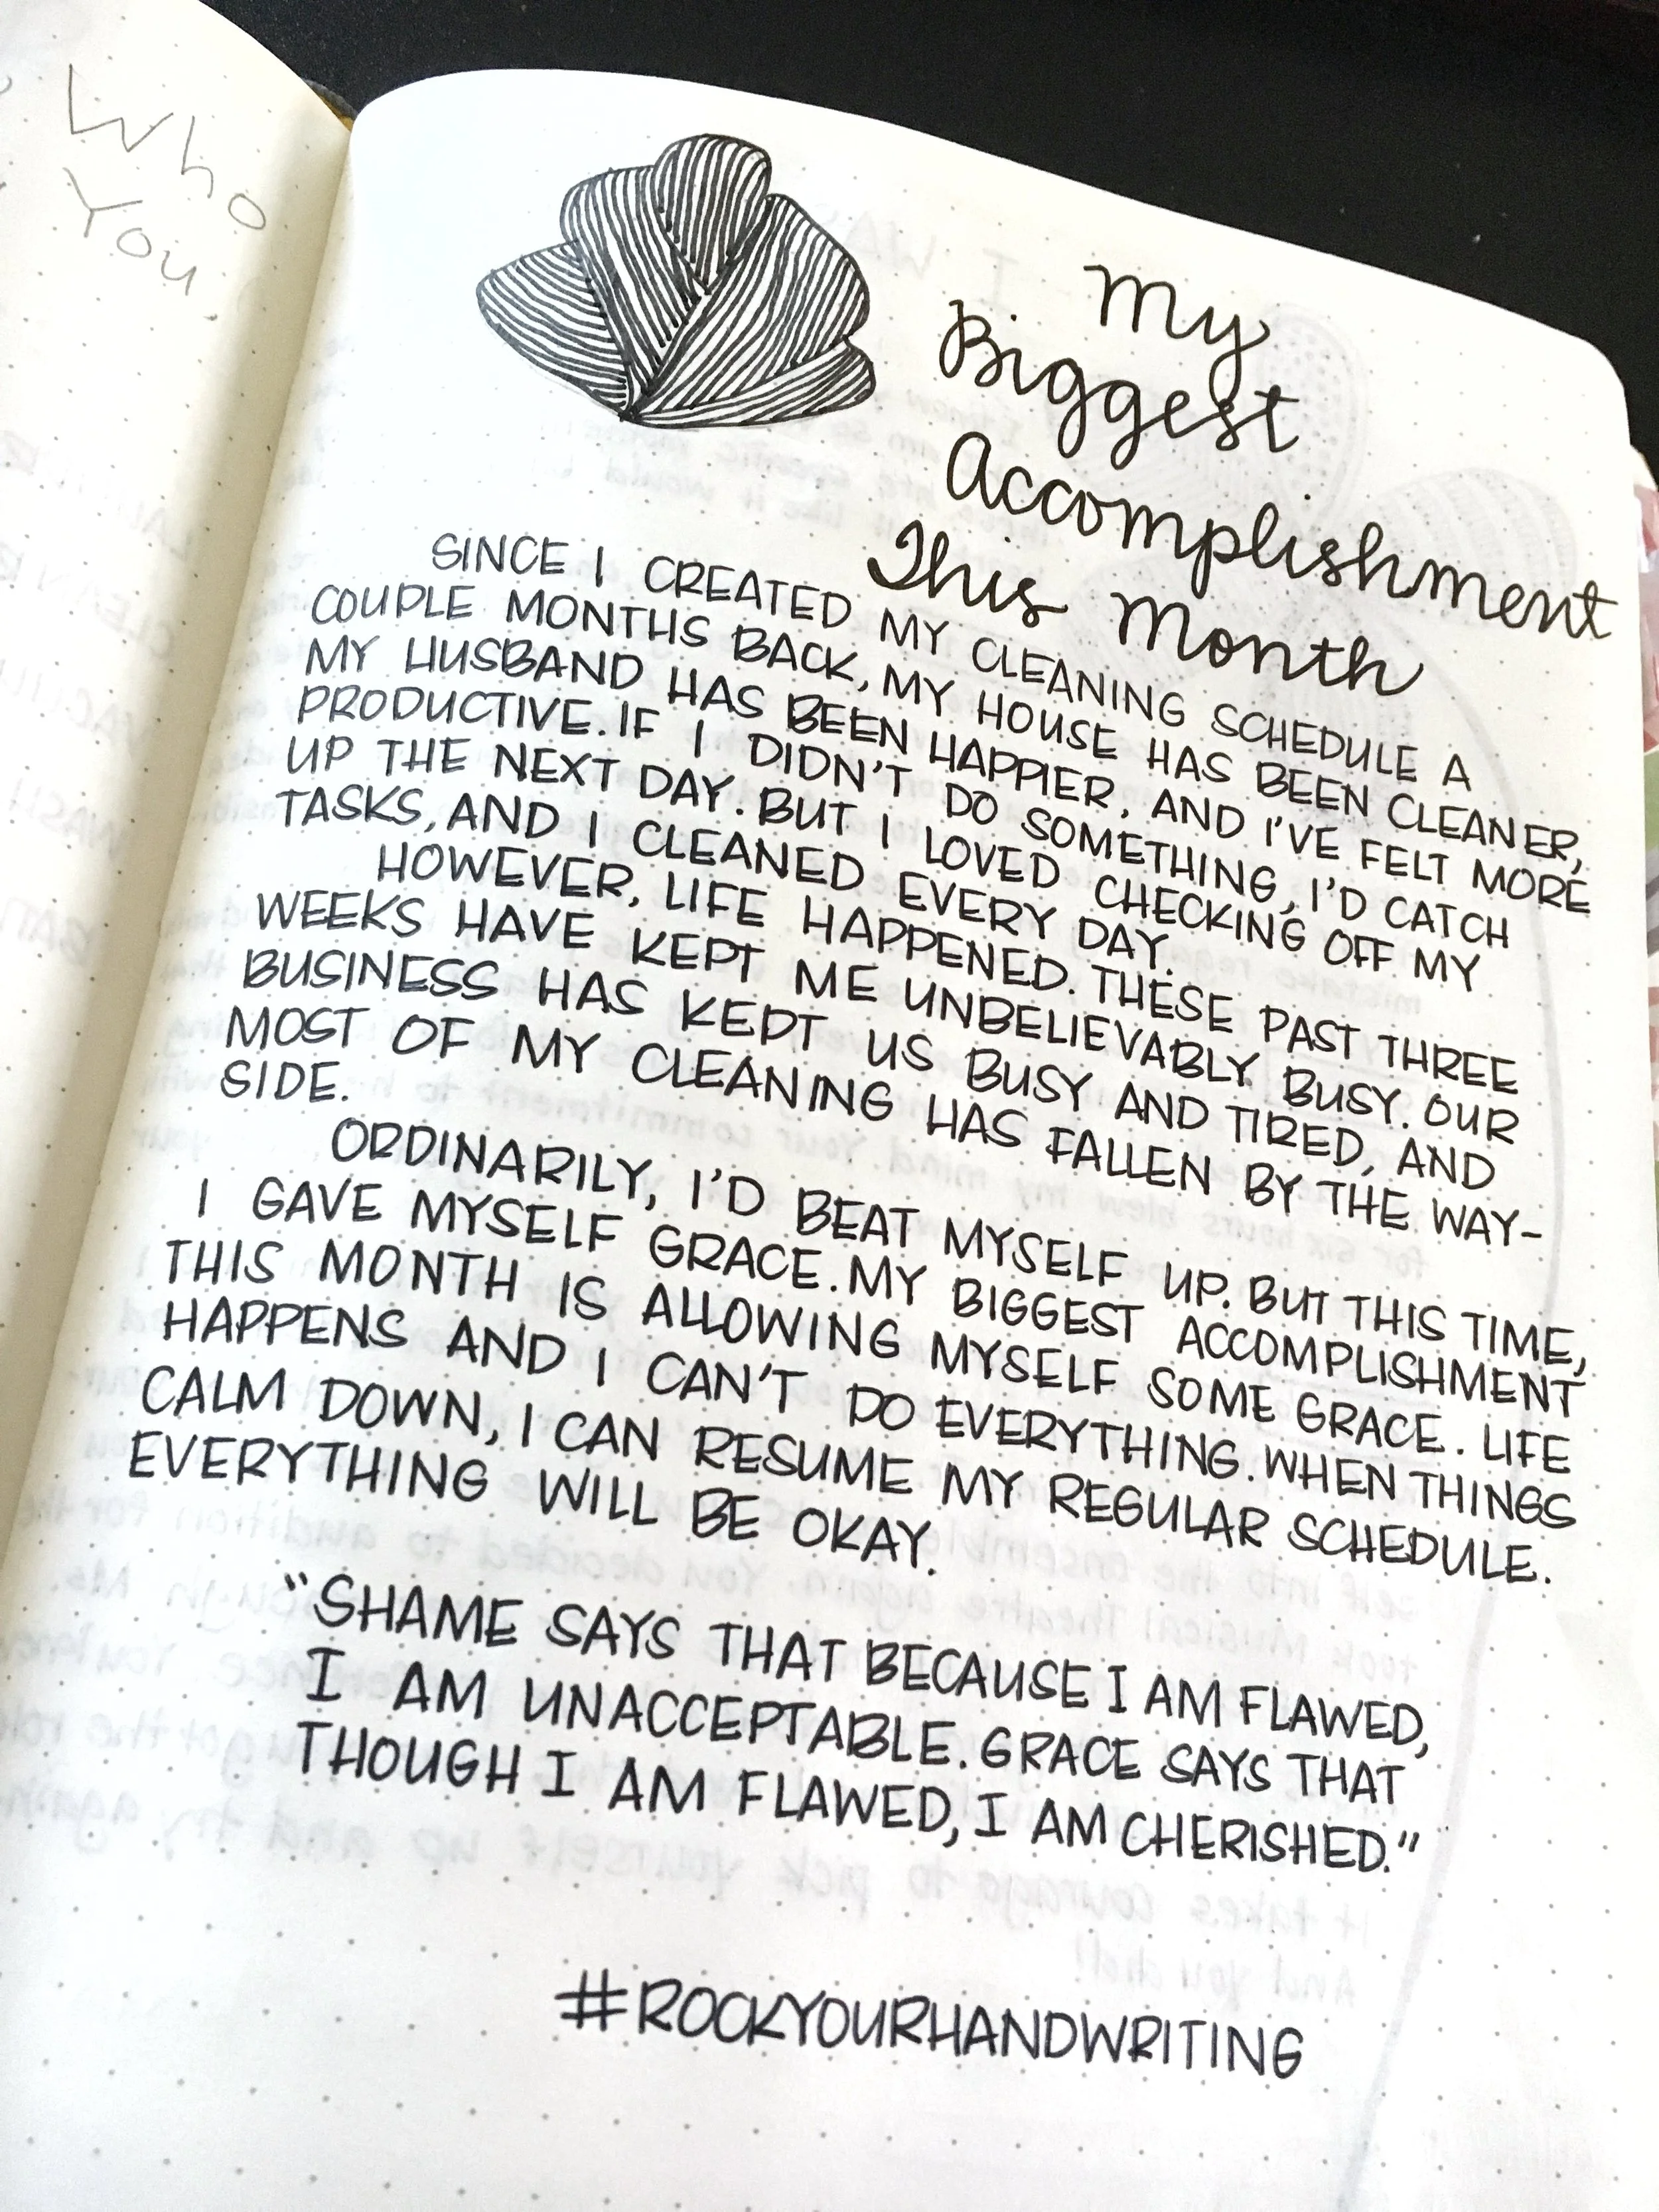 Who
You
My
Biggest
Accomplishment
This Month
SINCE I CREATED MY CLEANING SCHEDULE A
COUPLE MONTHS BACK, MY HOUSE HAS BEEN CLEANER,
MY HUSBAND HAS BEEN HAPPIER, AND I'VE FELT MORE
PRODUCTIVE. IF I DIDN'T DO SOMETHING, I'D CATCH
UP THE NEXT DAY. BUT I LOVED CHECKING OFF MY
TASKS, AND I CLEANED EVERY DAY.
HOWEVER, LIFE HAPPENED. THESE PAST THREE
WEEKS HAVE KEPT ME UNBELIEVABLY BUSY. OUR
BUSINESS HAS KEPT US BUSY AND TIRED, AND
MOST OF MY CLEANING HAS FALLEN BY THE WAY-
SIDE.
ORDINARILY, I'D BEAT MYSELF UP. BUT THIS TIME,
I GAVE MYSELF GRACE. MY BIGGEST ACCOMPLISHMENT
THIS MONTH IS ALLOWING MYSELF SOME GRACE. LIFE
HAPPENS AND I CAN'T DO EVERYTHING. WHEN THINGS
CALM DOWN, I CAN RESUME MY REGULAR SCHEDULE.
EVERYTHING WILL BE OKAY.
"SHAME SAYS THAT BECAUSE I AM FLAWED,
I AM UNACCEPTABLE. GRACE SAYS THAT
THOUGH I AM FLAWED, I AM CHERISHED."
#ROCKYOURHANDWRITING